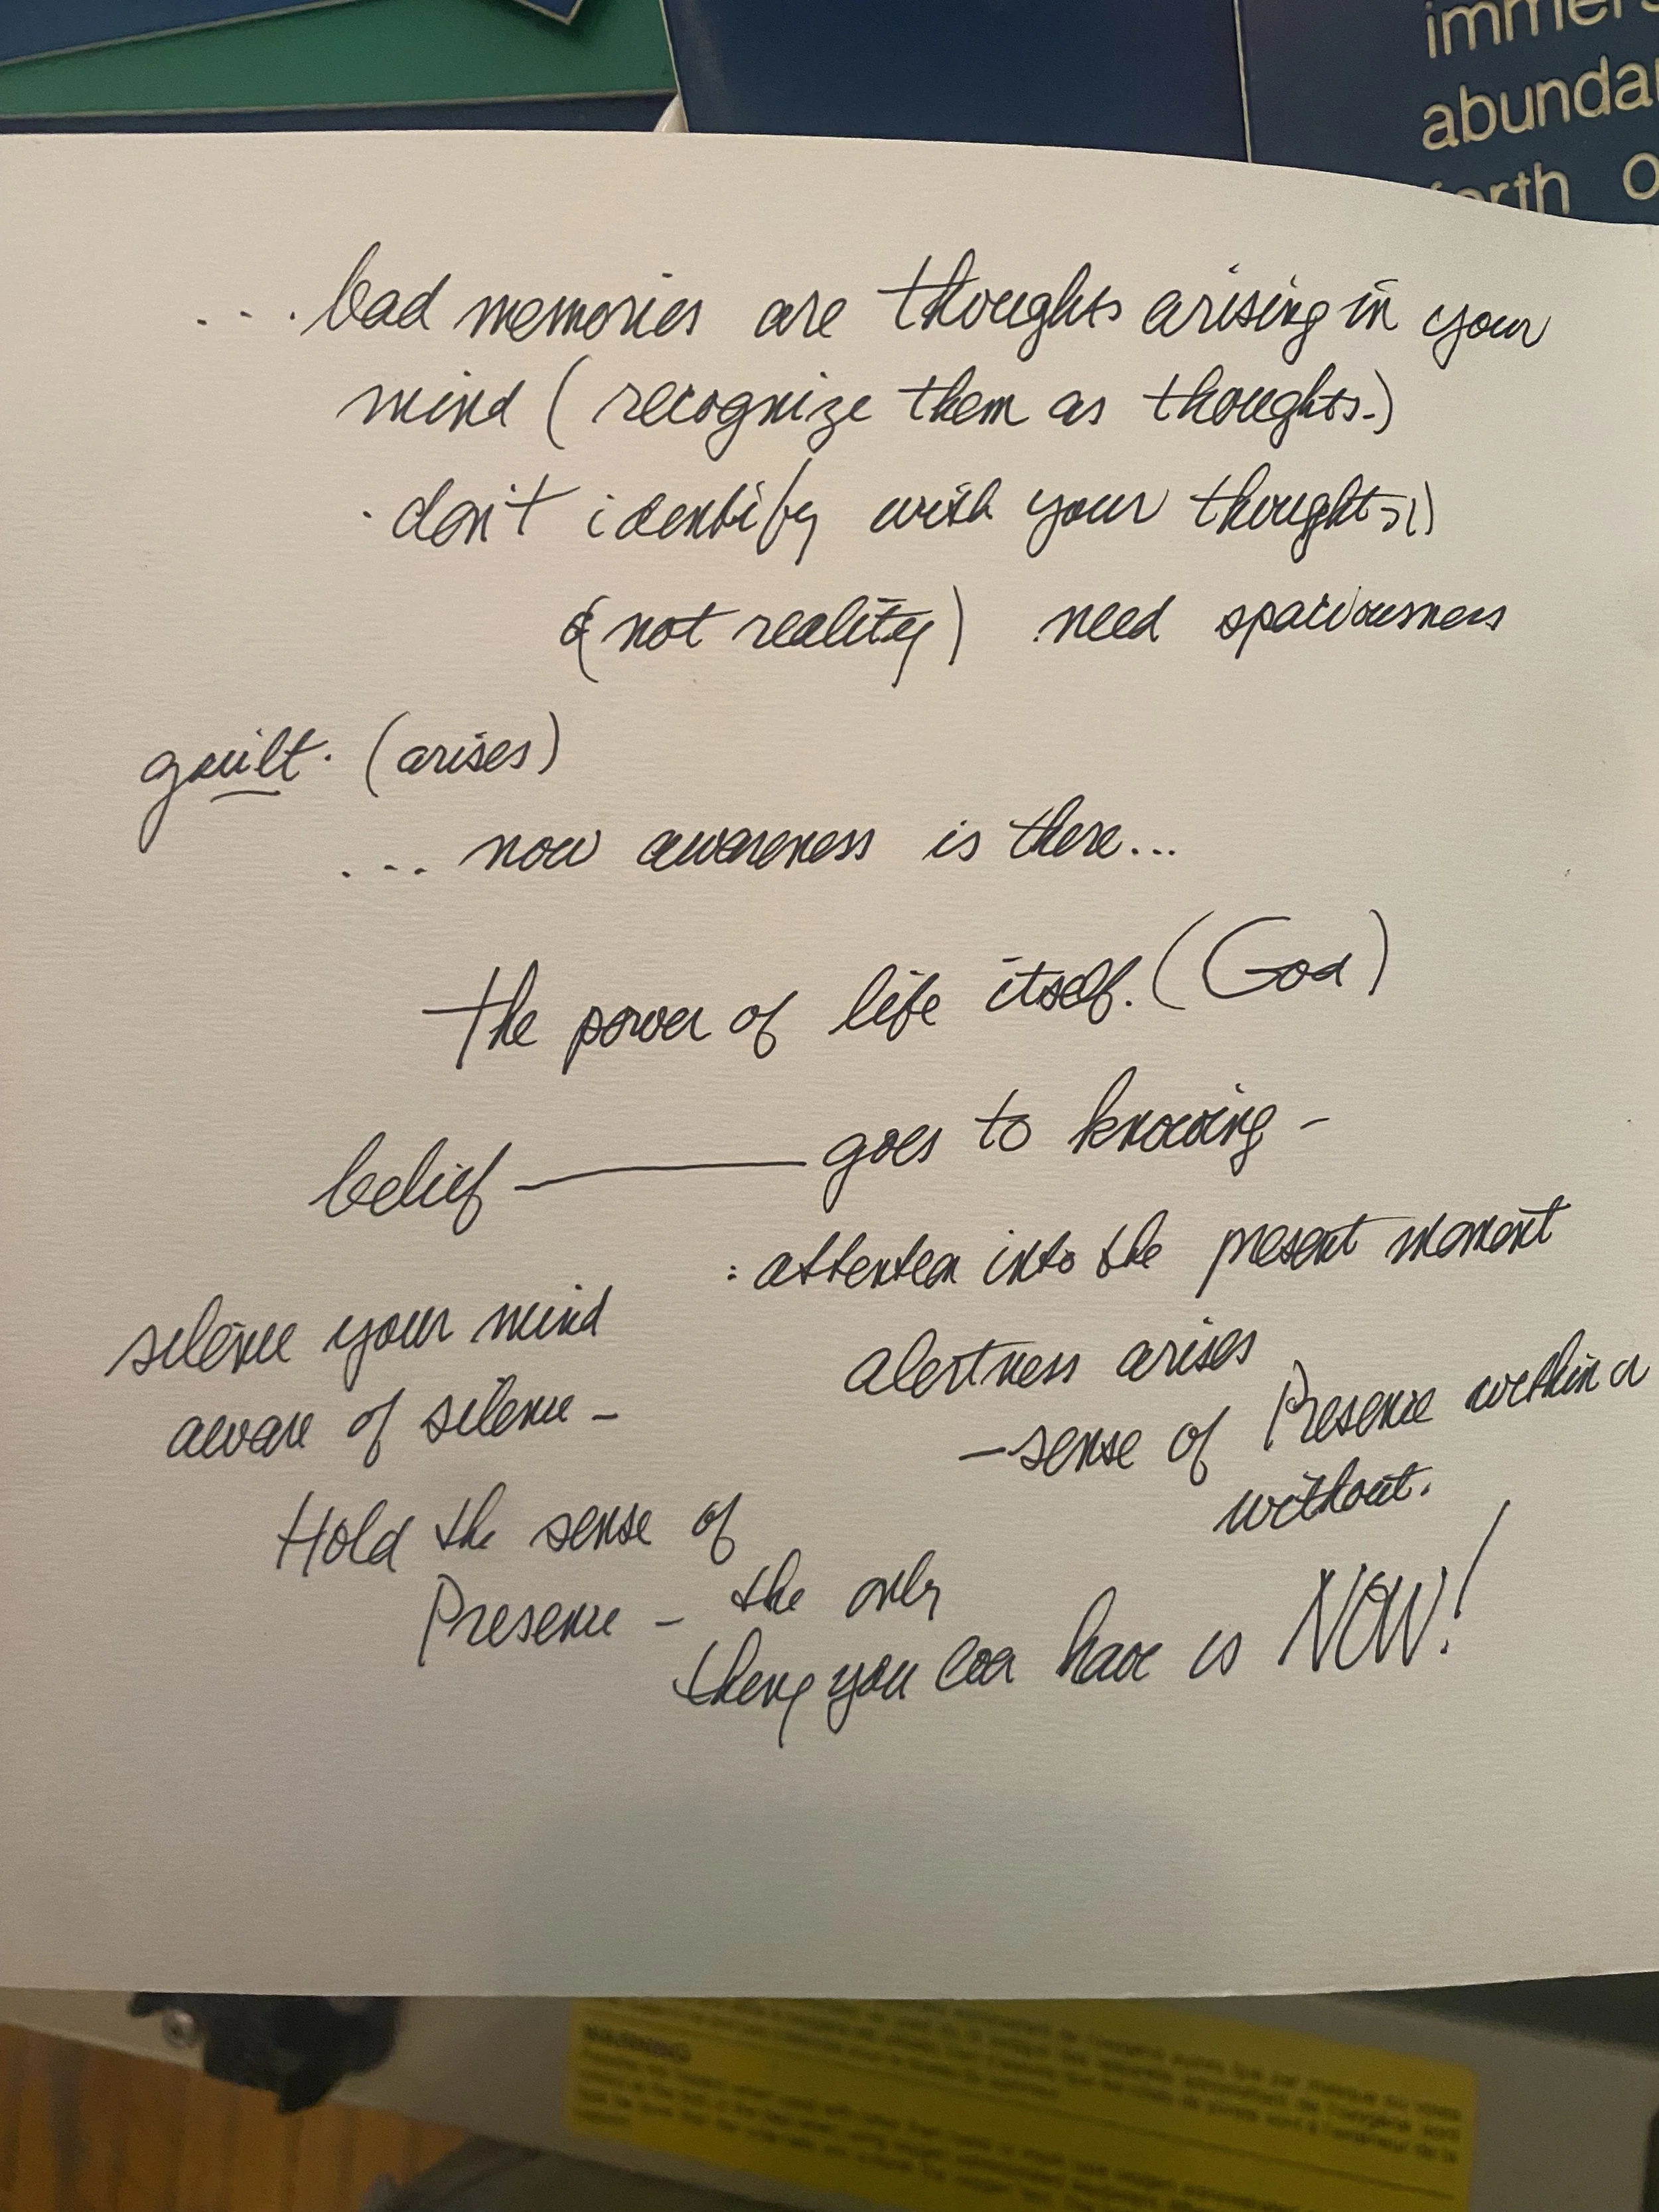 immers
abunda
forth o
... bad memories are thoughts arising in your
mind (recognize them as thoughts.)
. don't identify with your thoughts
(not reality) need spaciousness
guilt. (arises)
... now awareness is there...
the power of life itself. (God)
belief — goes to knowing -
: attention into the present moment
silence your mind
alertness arises
aware of silence -
- sense of Presence within
without.
Hold the sense of
Presence - the only
thing you can have is NOW!
WARNING